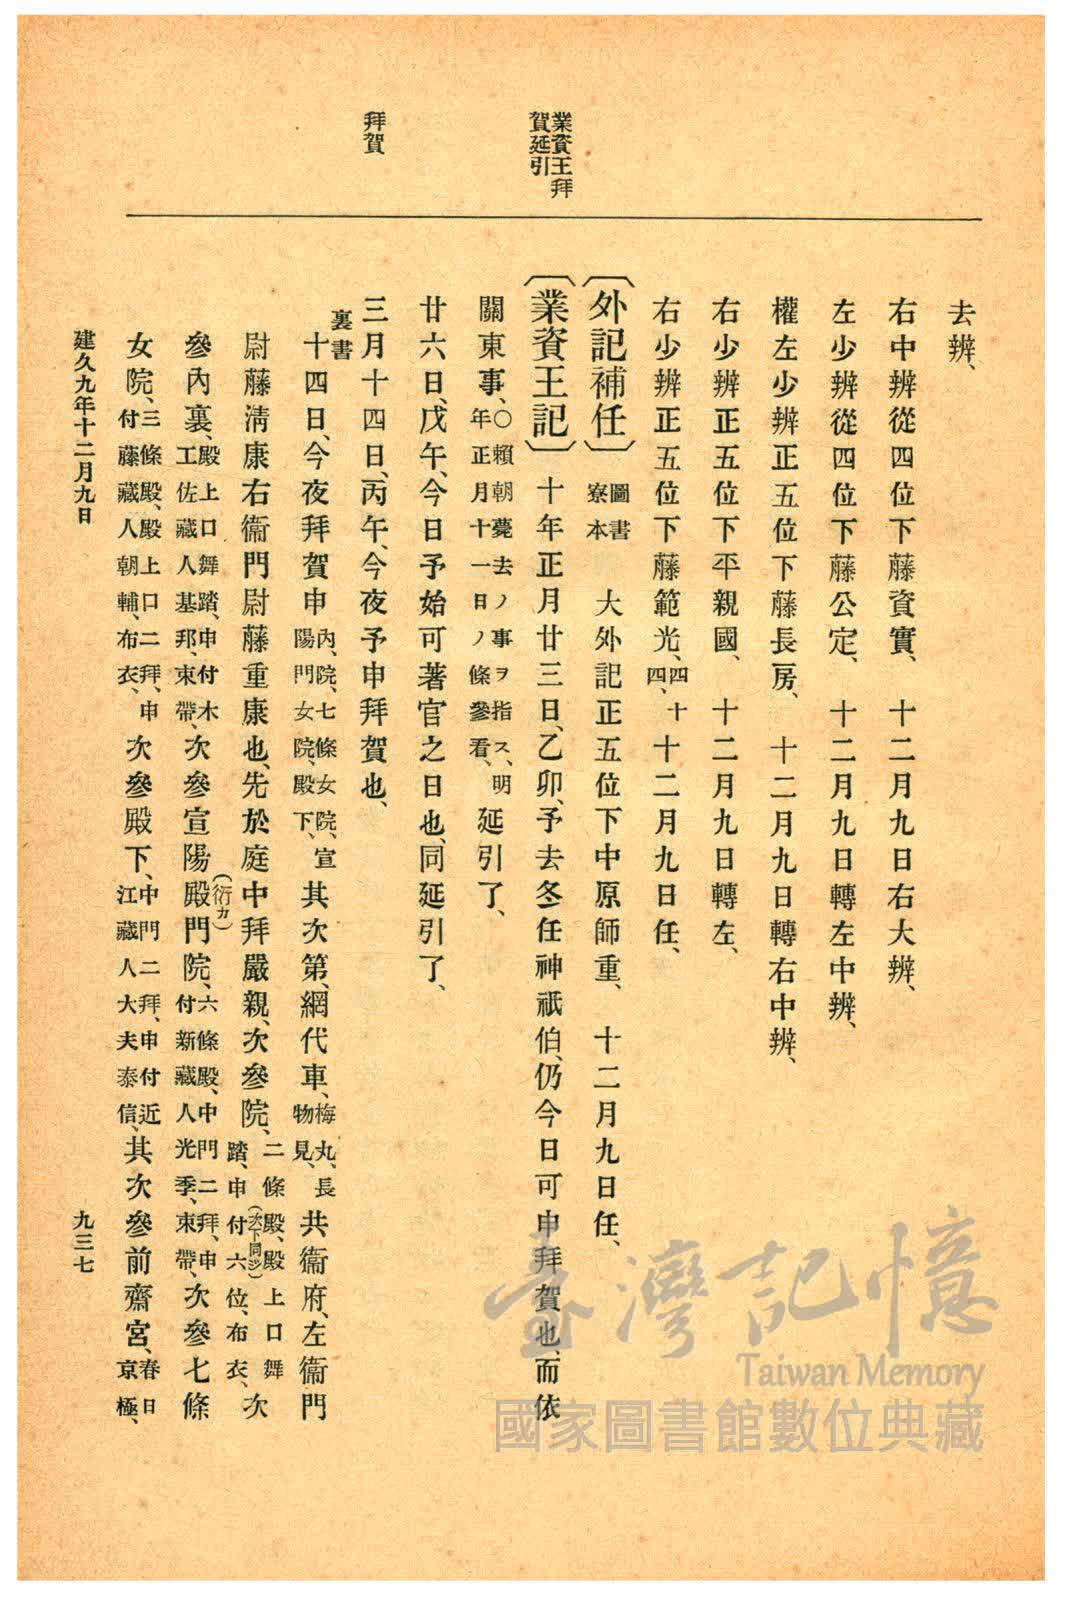 業資王拜
賀延引
拜賀
去辨、
右中辨從四位下藤資實、　十二月九日右大辨、
左少辨從四位下藤公定、　十二月九日轉左中辨、
權左少辨正五位下藤長房、　十二月九日轉右中辨、
右少辨正五位下平親國、　十二月九日轉左、
右少辨正五位下藤範光、四十四、　十二月九日任、
〔外記補任〕圖書寮本　大外記正五位下中原師重、　十二月九日任、
〔業資王記〕十年正月廿三日、乙卯、予去冬任神祇伯、仍今日可申拜賀也、而依
關東事、〇賴朝薨去ノ事ヲ指ス、明年正月十一日ノ條參看、延引了、
廿六日、戊午、今日予始可著官之日也、同延引了、
三月十四日、丙午、今夜予申拜賀也、
裏書
十四日、今夜拜賀申內、院、七條女院、宣陽門女院、殿下、其次第、網代車、梅丸、長物見、共衞府、左衞門
尉藤淸康右衞門尉藤重康也、先於庭中拜嚴親、次參院、二條殿、殿上口舞踏、申(次下同ジ)付六位、布衣、次
參內裏、殿上口舞踏、申付木工佐藏人基邦、束帶、次參宣陽殿(衍カ)門院、六條殿、中門二拜、申付新藏人光季、束帶、次參七條
女院、三條殿、殿上口二拜、申付藤藏人朝輔、布衣、次參殿下、中門二拜、申付近江藏人大夫泰信、其次參前齋宮、春日京極、
建久九年十二月九日
九三七
臺灣記憶
Taiwan Memory
國家圖書館數位典藏